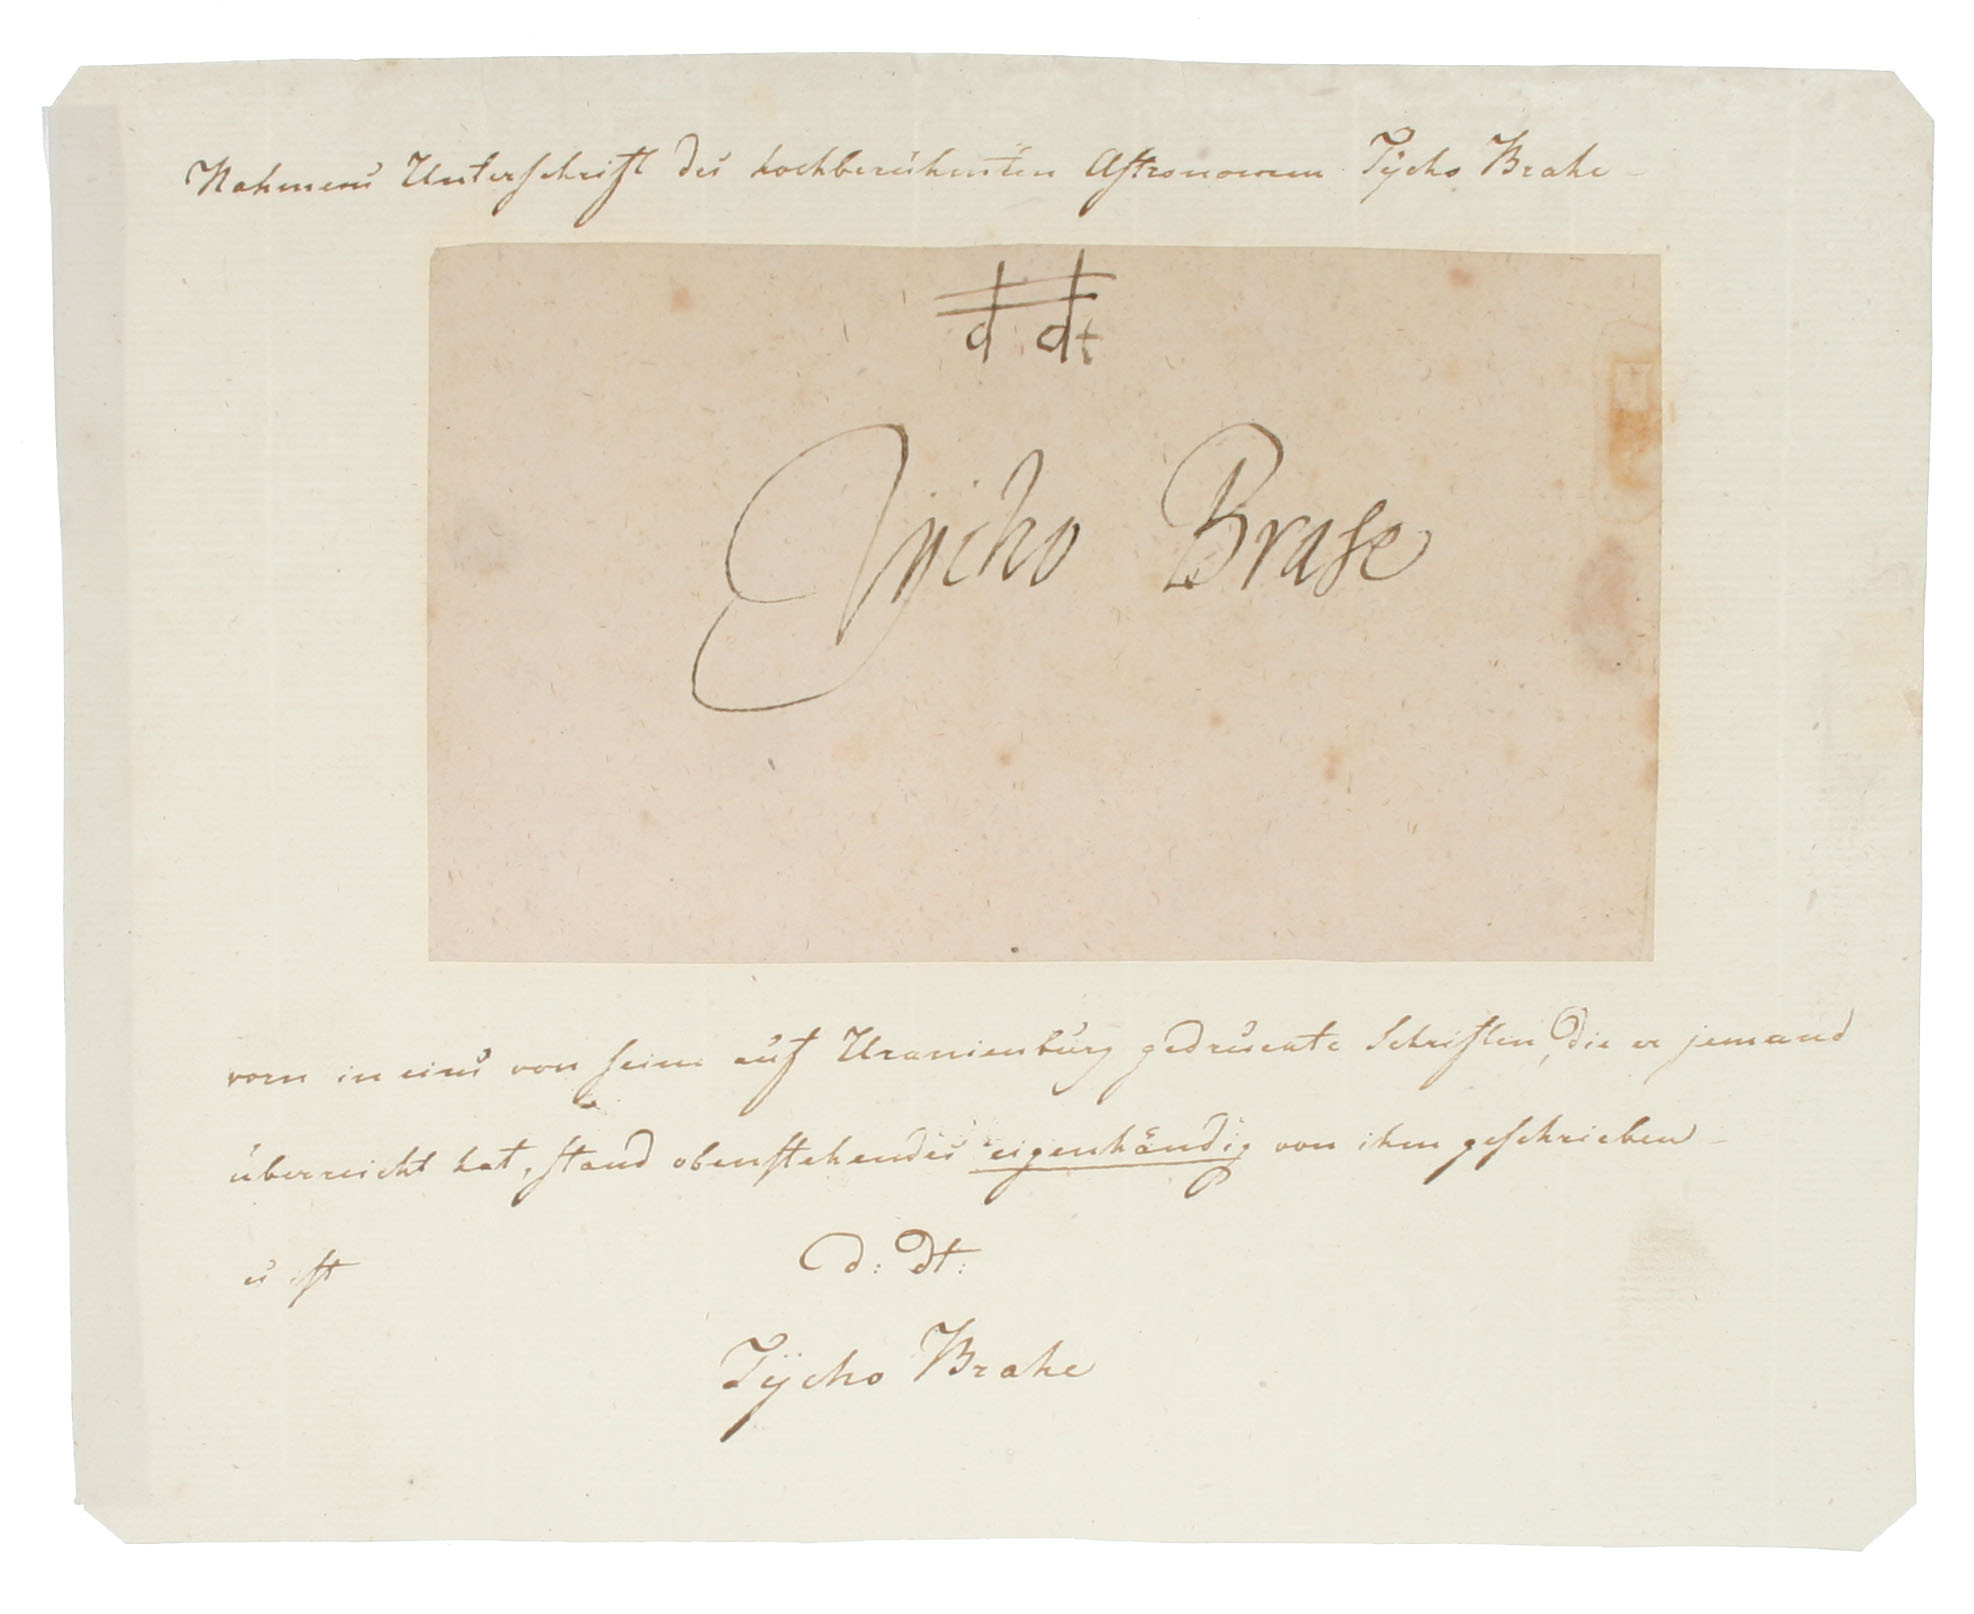 Nahmens Unterschrift des hochberühmten Astronomen Tÿcho Brahe
d dt
Tÿcho Brahe
vorn in eins von seine auf Uranienburg gedruckte Schriften, die er jemand
überreicht hat, stand obenstehendes eigenhändig von ihm geschrieben
es ist
D: dt:
Tÿcho Brahe